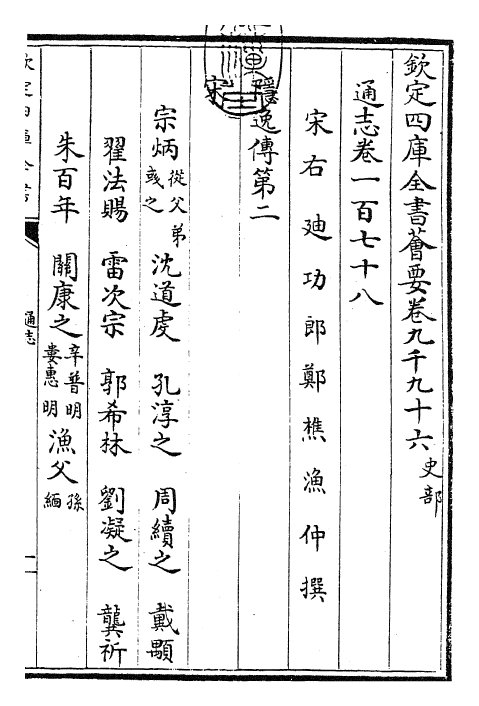 欽定四庫全書薈要卷九千九十六 史部
通志卷一百七十八
宋右迪功郎鄭樵漁仲撰
隱逸傳第二
宋
宗炳 從父弟彧之 沈道虔 孔淳之 周續之 戴顒
翟法賜 雷次宗 郭希林 劉凝之 龔祈
朱百年 關康之 辛普明 婁惠明 漁父 孫緬
通志